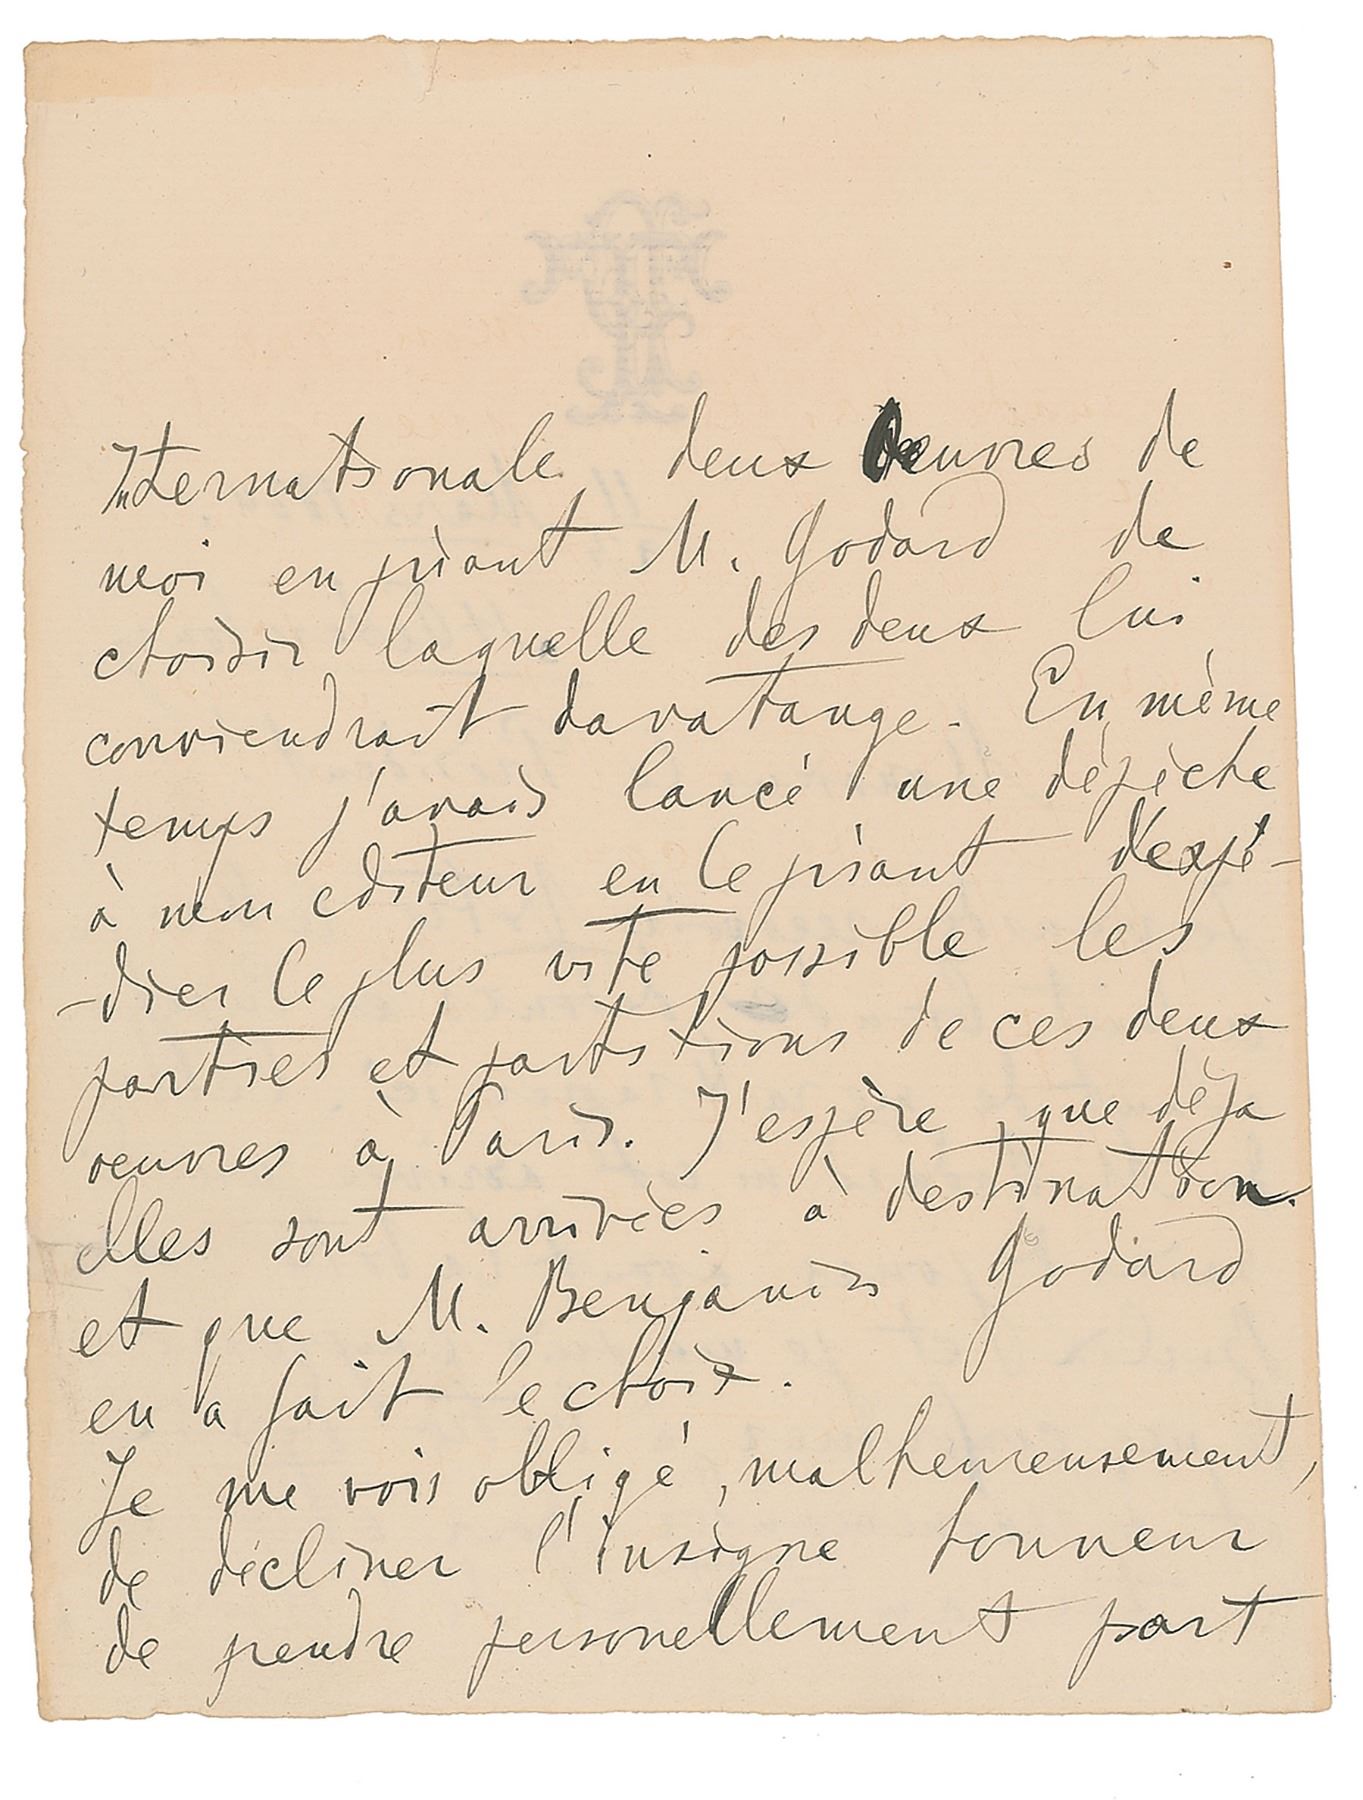 Internationale deux oeuvres de
moi en priant M. Godard de
choisir laquelle des deux lui
conviendrait davatange. En même
temps j'avais lancé une dépèche
à mon editeur en le priant d'expé-
-dier le plus vite possible les
parties et partitions de ces deux
oeuvres à Paris. J'espère, que déja
elles sont arrivées à destination
et que M. Benjamin Godard
en a fait le choix.
Je me vois obligé, malheureusement,
de décliner l'insigne honneur
de prendre personellement part